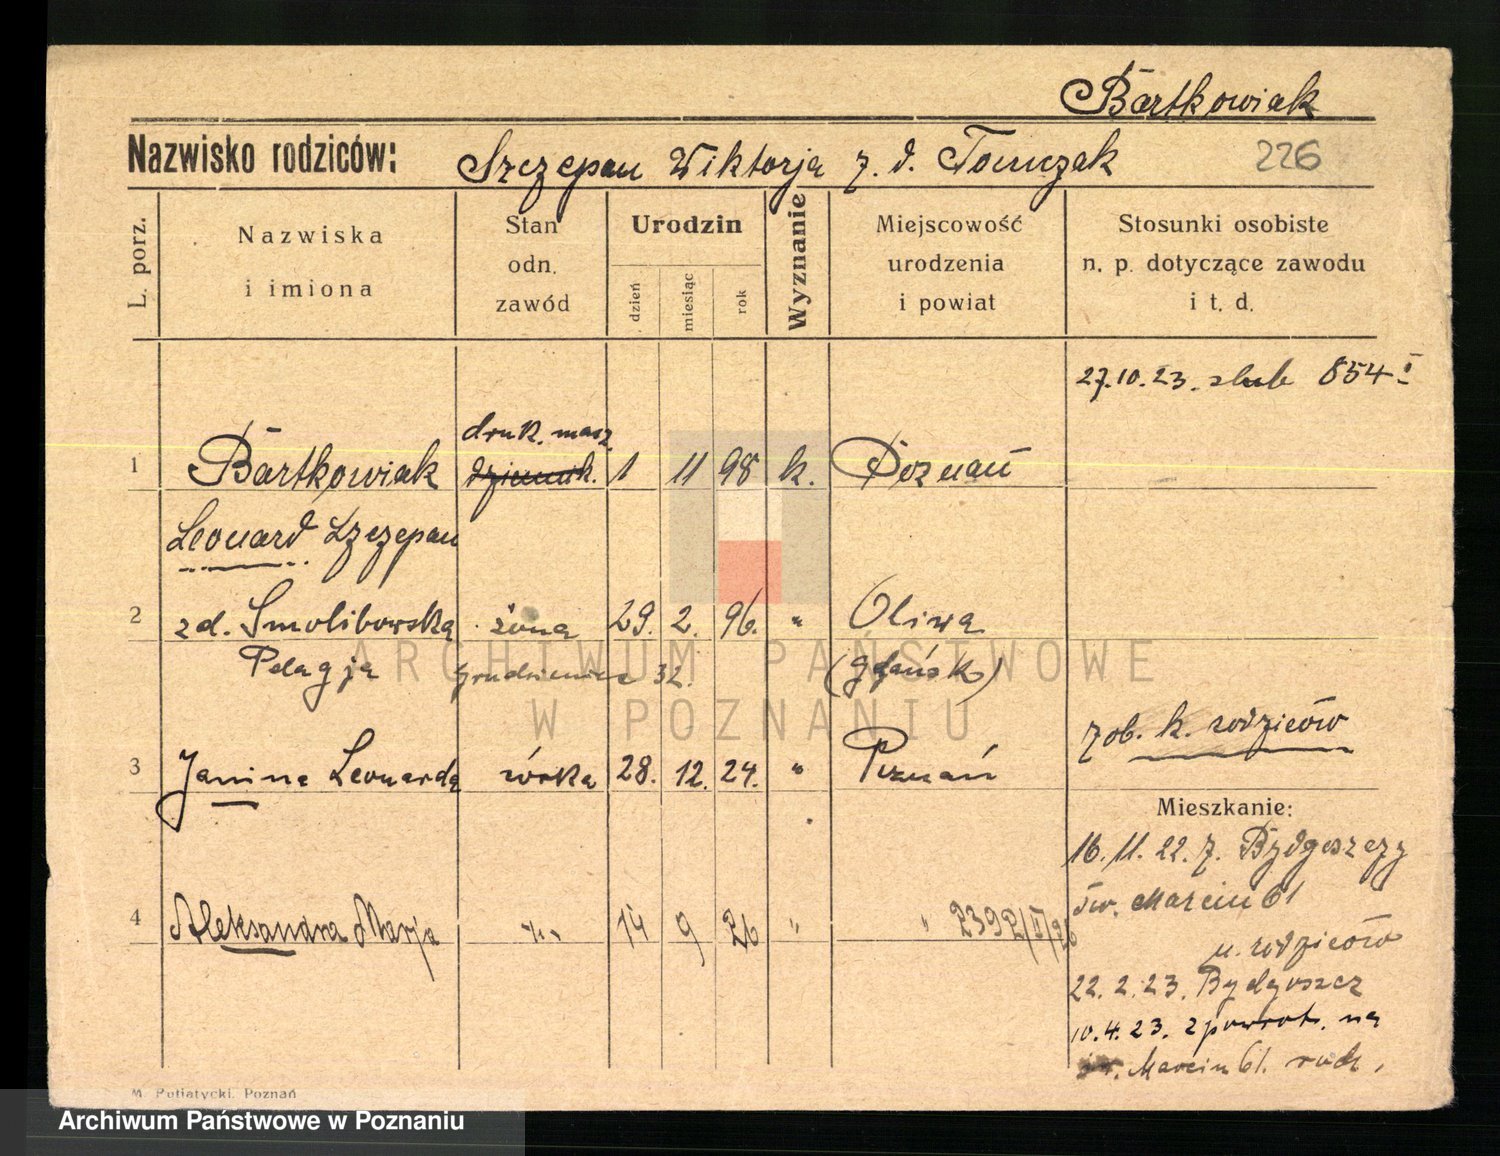 Bartkowiak
Nazwisko rodziców: Szczepan Wiktorja z. d. Tomczak 226
L. porz.
Nazwiska
i imiona
Stan
odn.
zawód
Urodzin
dzień
miesiąc
rok
Wyznanie
Miejscowość
urodzenia
i powiat
Stosunki osobiste
n. p. dotyczące zawodu
i t. d.
27.10.23. slub 854 I
druk. masz.
1 Bartkowiak 1 11 98 k. Poznań
Leonard Szczepan
2 zd. Smolibowska żona 29. 2. 96. " Oliwa
Pelagja 32. (Gdańsk)
zob. k. rodziców
3 Janina Leonarda córka 28. 12. 24. " Poznań
Mieszkanie:
16. 11. 22. z. Bydgoszczy
św. Marcin 61
4 Aleksandra Marja " 14 9 26 " " 2392/
u. rodziców
22. 2. 23. Bydgoszcz
10. 4. 23. z powrot. na
św. Marcin 61. rodz.
M. Putiatycki, Poznań
ARCHIWUM PAŃSTWOWE
W POZNANIU
Archiwum Państwowe w Poznaniu